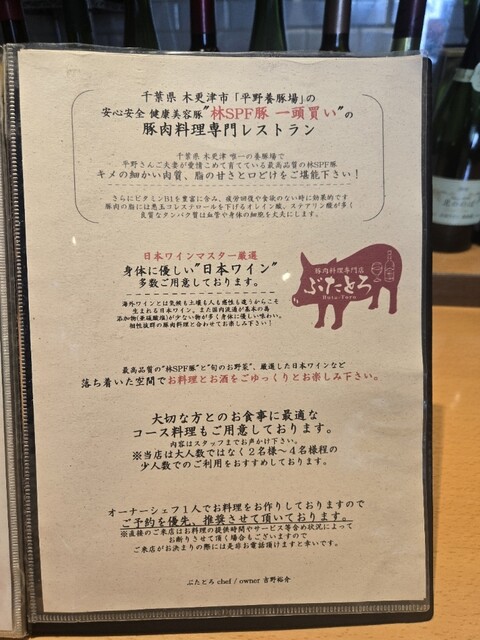 千葉県 木更津市「平野養豚場」の
安心安全 健康美容豚"林SPF豚 一頭買い"の
豚肉料理専門レストラン
千葉県 木更津 唯一の養豚場で
平野さんご夫妻が愛情こめて育てている最高品質の林SPF豚
キメの細かい肉質、脂の甘さと口どけをご堪能下さい！
さらにビタミンB1を豊富に含み、疲労回復や食欲のない時に効果的です
豚肉の脂には悪玉コレステロールを下げるオレイン酸、ステアリン酸が多く
良質なタンパク質は血管や身体の細胞を丈夫にします。
日本ワインマスター厳選
身体に優しい"日本ワイン"
多数ご用意しております。
海外ワインとは気候も土壌も人も感性も違うからこそ
生まれる日本ワイン。また国内流通が基本の為
添加物(亜硫酸塩)が少ない物が多く身体に優しい味わい。
相性抜群の豚肉料理と合わせてお楽しみ下さい！
豚肉料理専門店
ぶたとろ
Buta-Toro
最高品質の"林SPF豚"と"旬のお野菜"、厳選した日本ワインなど
落ち着いた空間でお料理とお酒をごゆっくりとお楽しみ下さい。
大切な方とのお食事に最適な
コース料理もご用意しております。
内容はスタッフまでお声かけ下さい。
※当店は大人数ではなく２名様〜４名様程の
少人数でのご利用をおすすめしております。
オーナーシェフ１人でお料理をお作りしておりますので
ご予約を優先、推奨させて頂いております。
※直接のご来店はお料理の提供時間やサービス等含め状況によって
お断りさせて頂く場合もございますので
ご来店がお決まりの際には是非お電話頂けますと幸いです。
ぶたとろ chef / owner 吉野裕介